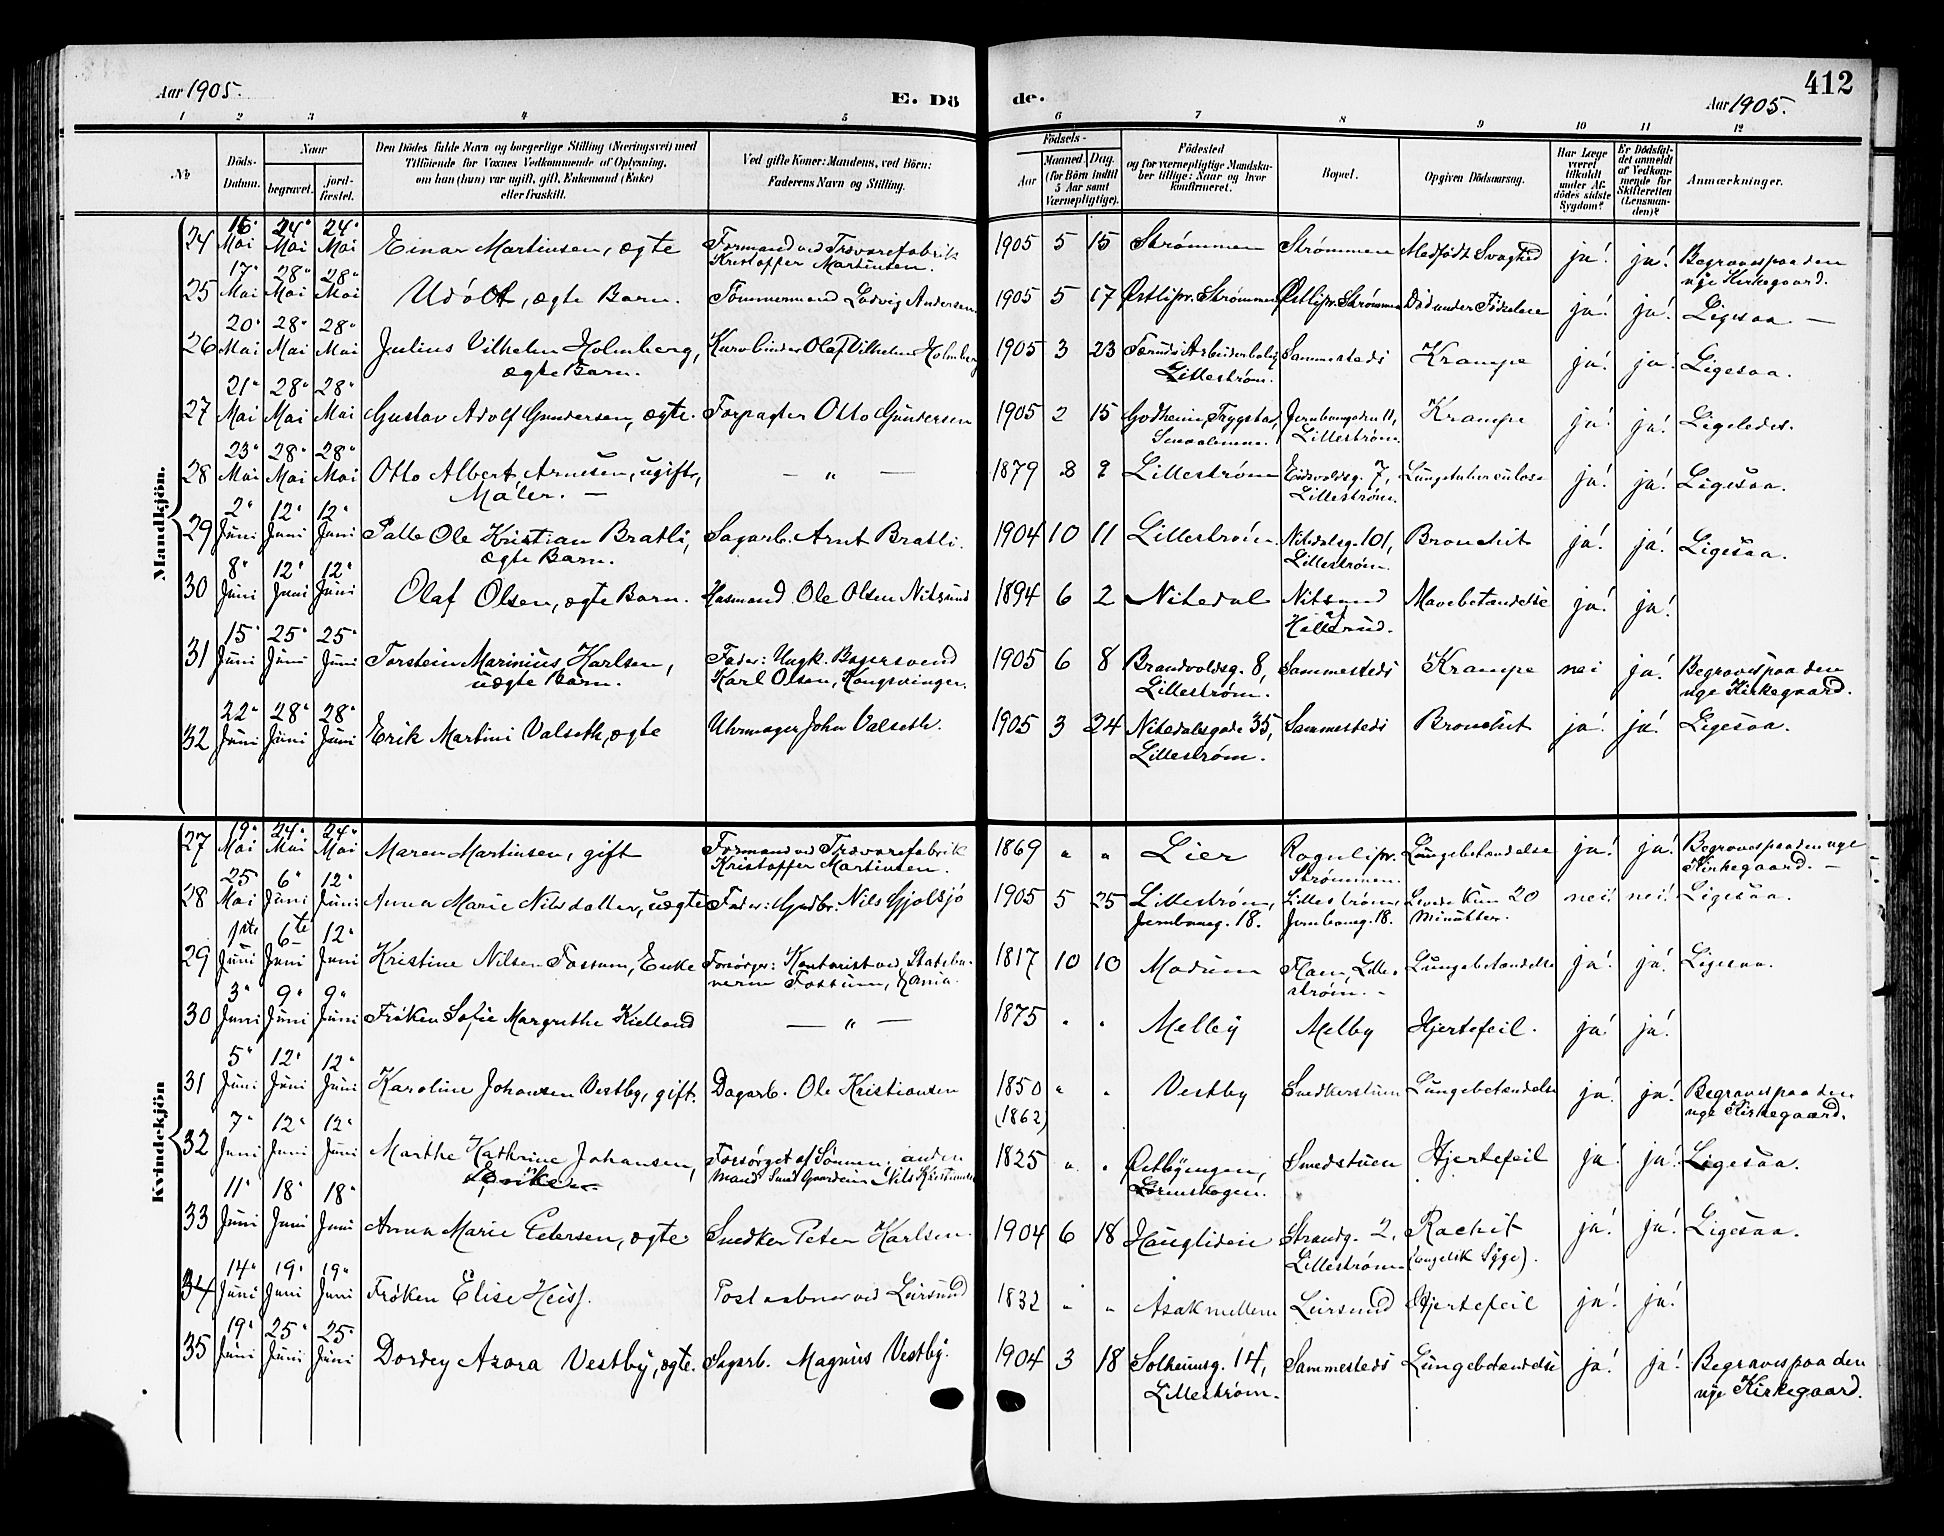 Aar 1905. E. Dö de. Aar 1905. 412
1 2 3 4 5 6 7 8 9 10 11 12
No. Döds-Datum. Naar begravet. jord-fæstet. Den Dödes fulde Navn og borgerlige Stilling (Næringsvei) med Tilföiende for Voxnes Vedkommende af Oplysning, om han (hun) var ugift, gift, Enkemand (Enke) eller fraskilt. Ved gifte Koner: Mandens, ved Börn: Faderens Navn og Stilling. Födsels- Aar Maaned Dag. (for Börn indtil 5 Aar samt Værnepligtige). Födested og for værnepligtige Mandskaber tillige: Naar og hvor konfirmeret. Bopæl. Opgiven Dödsaarsag. Har Læge været tilkaldt under Afdödes sidste Sygdom? Er Dödsfaldet anmeldt af Vedkommende for Skifteretten (Lensmanden)? Anmærkninger.
Mandkjön.
24 16 Mai 24 Mai 24 Mai Einar Martinsen, ægte Formand ved Trævarefabrik Kristoffer Martinsen. 1905 5 15 Strømmen Strømmen Medfødt Svaghed ja! ja! Begraves paa den nye Kirkegaard.
25 17 Mai 28 Mai 28 Mai Udöbt, ægte Barn. Tömmermand Ludvig Andersen 1905 5 17 Østli pr. Strømmen Østli pr. Strømmen Död under Födselen ja! ja! Ligesaa —
26 20 Mai 28 Mai 28 Mai Julius Vilhelm Holmberg, ægte Barn. Kurvbinder Olaf Vilhelm Holmberg 1905 3 23 Arbeiderbolig Lillestrøm. Sammesteds Krampe ja! ja! Ligesaa.
27 21 Mai 28 Mai 28 Mai Gustav Adolf Gundersen, ægte. Forpagter Otto Gundersen 1905 2 15 Godheim, Trygstad, Smaalenene. Jernbanegaden 11, Lillestrøm. Krampe ja! ja! Ligeledes.
28 23 Mai 28 Mai 28 Mai Otto Albert Arnesen, ugift, Maler. — — " — 1879 8 9 Lillestrøm Eidsvoldsg. 7, Lillestrøm. Lungetuberculose ja! ja! Ligesaa.
29 2 Juni 12 Juni 12 Juni Palle Ole Kristian Bratli, ægte Barn. Sagarb. Arnt Bratli. 1904 10 11 Lillestrøm Nitedalsg. 101, Lillestrøm. Bronchit ja! ja! Ligesaa.
30 8 Juni 12 Juni 12 Juni Olaf Olsen, ægte Barn. Husmand Ole Olsen Nitsund 1894 6 2 Nitedal Nitsund Mavebetændelse ja! ja!
31 15 Juni 25 Juni 25 Juni Torstein Marinius Karlsen, uægte Barn. Fader: Ungk. Bagersvend Karl Olsen, Kongsvinger. 1905 6 8 Brandvoldsg. 8, Lillestrøm. Sammesteds Krampe nei ja! Begraves paa den nye Kirkegaard.
32 22 Juni 28 Juni 28 Juni Erik Martini Valseth, ægte Uhrmager John Valseth. 1905 3 24 Nitedalsgade 35, Lillestrøm. Sammesteds Bronchit ja! ja! Ligesaa.
Kvindekjön
27 19 Mai 24 Mai 24 Mai Maren Martinsen, gift Formand ved Trævarefabrik Kristoffer Martinsen. 1869 " " Lier pr. Strømmen. Lungebetændelse ja! ja! Begraves paa den nye Kirkegaard. —
28 25 Mai 6 Juni 12 Juni Anna Marie Nilsdatter, uægte Fader: Gbr. Nils Gjølsjö 1905 5 25 Lillestrøm, Jernbaneg. 18. Lillestrøm, Jernbaneg. 18. Levede kun 20 Minutter. nei! nei! Ligesaa.
29 1ste Juni 6te Juni 12 Juni Kristine Nilsen Fossum, Enke Forsörger: Kontorist ved Statsbanerne Fossum, Kania. 1817 10 10 Modum Flaen, Lillestrøm. - Lungebetændelse ja! ja! Ligesaa.
30 3 Juni 9 Juni 9 Juni Frøken Sofie Margrethe Kielland — " — 1875 " " Melby Melby Hjertefeil. ja! ja!
31 5 Juni 12 Juni 12 Juni Karoline Johansen Vestby, gift. Dagarb. Ole Kristiansen 1850 (1862) " " Vestby Snedkerstuen Lungebetændelse ja! ja! Begraves paa den nye Kirkegaard.
32 7 Juni 12 Juni 12 Juni Marthe Kathrine Johansen, Enke Forsörget af Sönnen; anden Mand Nils Kristiansen 1825 " " Østbyengen, Lörenskogen. Smedstuen Hjertefeil ja! ja! Ligesaa.
33 11 Juni 18 Juni 18 Juni Anna Marie Petersen, ægte Snedker Peter Karlsen. 1904 6 18 Hauglideie Strandg. 2, Lillestrøm Rachit (engelsk Syge). ja! ja! Ligesaa.
34 14 Juni 19 Juni 19 Juni Frøken Elise Heiss. Postaabner ved Leirsund 1832 " " Asak mellem Leirsund Hjertefeil ja! ja!
35 19 Juni 25 Juni 25 Juni Dordey Azora Vestby, ægte. Sagarb. Magnus Vestby. 1904 3 18 Solheimsg. 14, Lillestrøm. Sammesteds Lungebetændelse ja! ja! Begraves paa den nye Kirkegaard.